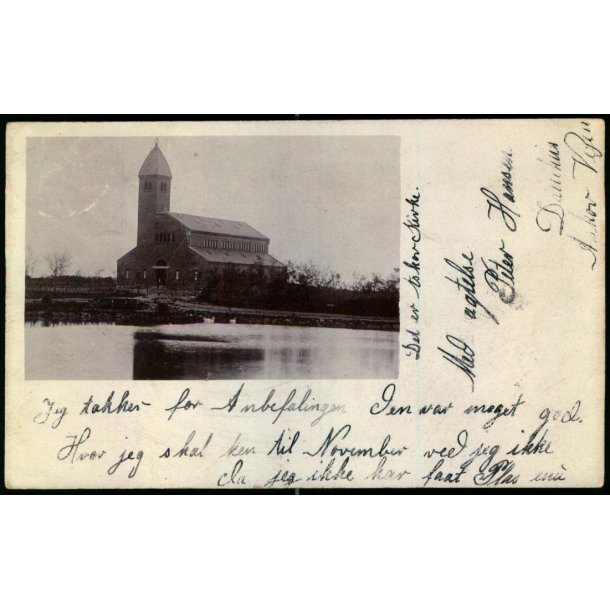 Jeg takker for Anbefalingen Den var meget god.
Hvor jeg skal hen til November ved jeg ikke
da jeg ikke har faat Plas nu
Det er Askov Kirke.
Med agtelse
Peter Hansen
Askov Vejen